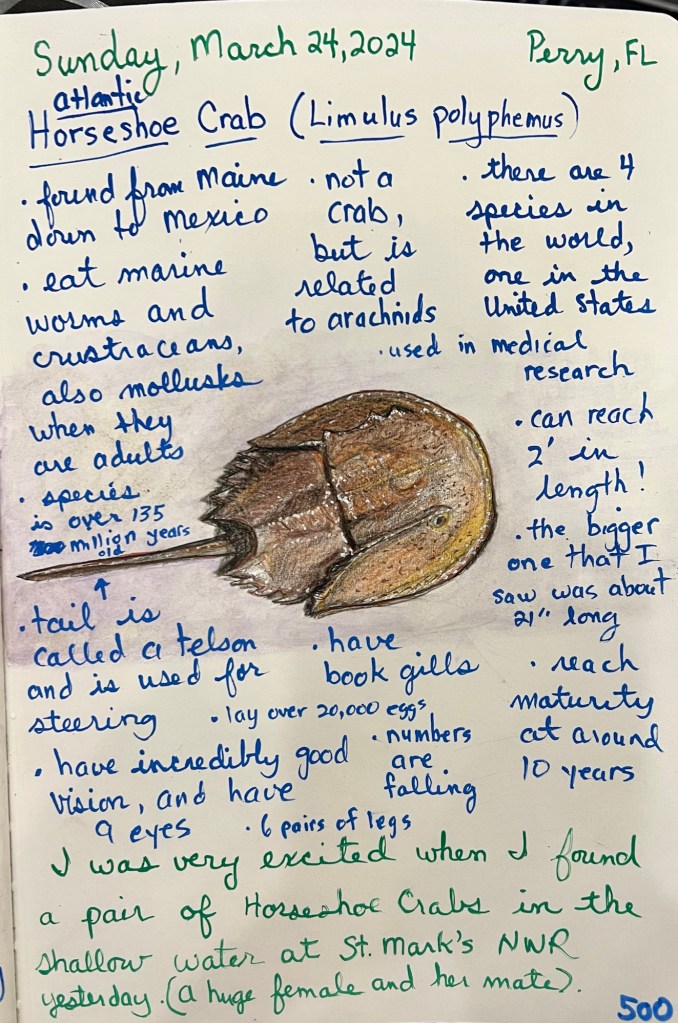 Sunday, March 24, 2024
Perry, FL
atlantic
Horseshoe Crab (Limulus polyphemus)
• found from Maine
down to Mexico
• eat marine
worms and
crustraceans,
also mollusks
when they
are adults
• species
is over 135
million years
old
• not a
crab,
but is
related
to arachnids
• there are 4
species in
the world,
one in the
United States
• used in medical
research
• can reach
2' in
length!
• the bigger
one that I
saw was about
21" long
↑
• tail is
called a telson
and is used for
steering
• have
book gills
• lay over 20,000 eggs
• reach
maturity
at around
10 years
• have incredibly good
vision, and have
9 eyes
• numbers
are
falling
• 6 pairs of legs
I was very excited when I found
a pair of Horseshoe Crabs in the
shallow water at St. Mark's NWR
yesterday. (a huge female and her mate).
500